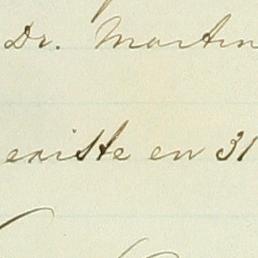 Dr. Martin
existe en 31